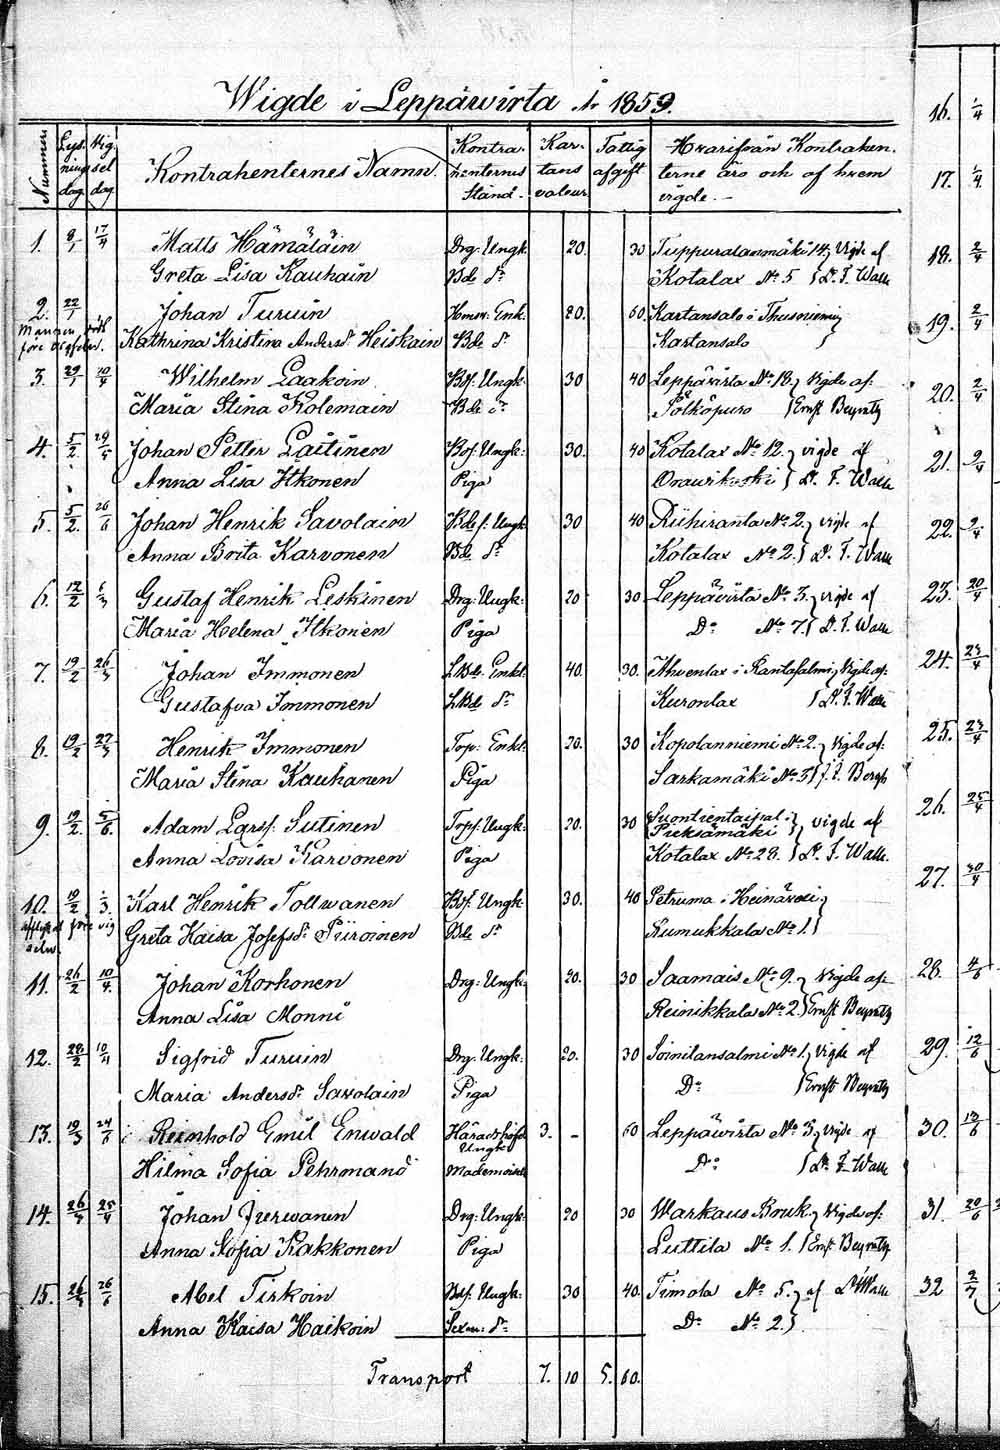 Wigde i Leppäwirta År 1859.
Nummer
Lys-
nings
dag
Vig
sel
dag
Kontrahenternes Namn.
Kontra-
henternes
Stånd.
Kar-
tans
valeur
Fattig
afgift
Hvarifrån Kontrahen-
terne äro och af hvem
vigde.
1. 8/1 17/4 Matts Hämäläin Drg: Ungk. 20. 30 14, Vigde af
Greta Lisa Kauhain Bde dr Kotalax No 5 D. F. Walle
2. 22/1 Johan Turuin Enk. 20. 60. Kartansalo i
Mannen död
före vigseln. Kathrina Kristina Andersdr Heiskain Bde dr Kartansalo
3. 29/1 10/4 Wilhelm Laakoin Bdf. Ungk. 30 40 Leppävirta No 18, Vigde af:
Maria Stina Kolemain Bde dr Pölköpuro Ernst Beyrath
4. 5/2 29/5 Johan Petter Laitinen Bof. Ungk: 30. 40 Kotalax No 12. vigde af
Anna Lisa Itkonen Piga Orawikoski D. F. Walle
5. 5/2 26/6 Johan Henrik Savolain Bde f. Ungk 30 40 Riihiranta No 2. vigde af
Anna Brita Karvonen Bde dr Kotalax No 2. D. F. Walle
6. 12/2 6/3 Gustaf Henrik Leskinen Drg: Ungk: 20 30 Leppäwirta No 3. vigde af
Maria Helena Itkonen Piga Do No 7. D. F. Walle
7. 19/2 26/3 Johan Immonen LBde. Enkl. 40. 30. Ahvenlax i Rantasalmi, Vigde af:
Gustafva Immonen LBde dr Kuronlax D. F. Walle
8. 19/2 27/3 Henrik Immonen Torp: Enkl. 20. 30 Kopolanniemi No 2. Vigde af:
Maria Stina Kauhanen Piga Sarkamäki No 5 J. F. Bergh
9. 19/2 5/6. Adam Larsf: Sutinen Torpf. Ungk: 20. 30 Suontientaipal i
Pieksämäki vigde af
Anna Lovisa Karvonen Piga Kotalax No 28. D. F. Walle.
10. 19/2 /3. Karl Henrik Tollwanen Bof. Ungk. 30. 40 Petruma i Heinävesi
före vig
seln. Greta Kaisa Josefsdr Piiroinen Bde dr Kumukkala No 1.
11. 26/2 10/4. Johan Korhonen Drg: Ungk: 20. 30 Saamais No 9. Vigde af:
Anna Lisa Monni Reinikkala No 2. Ernst Beyrath
12. 28/2 10/4 Sigfrid Turuin Drg: Ungk: 20. 30 Soinilansalmi No 1. Vigde af
Maria Andersdr Savolain Piga Do Ernst Beyrath
13. 19/3 24/5 Reinhold Emil Enwald Häradshöfd.
Ungk. 3. - 60 Leppäwirta No 3, vigde af
Hilma Sofia Pehrmand Mademoiselle Do D. F. Walle
14. 26/3 25/4 Johan Jierwanen Drg: Ungk: 20 30 Warkaus Bruk. Vigde af:
Anna Sofia Kakkonen Piga Luttila No 1. Ernst Beyrath
15. 26/3 26/6 Abel Tirkoin Bdf: Ungk: 30 40. Timola No 5. af D. F. Walle
Anna Kaisa Haikoin dr Do No 2.
Transport 7. 10 5. 60.
16. /4
17. /4.
18. 2/4
19. 2/4
20. 2/4
21. 2/4
22. 2/4
23. 20/4
24. 23/4
25. 23/4
26. 25/4
27. 30/4
28. 4/6
29. 12/6
30. 13/6
31. 20/6
32 2/7